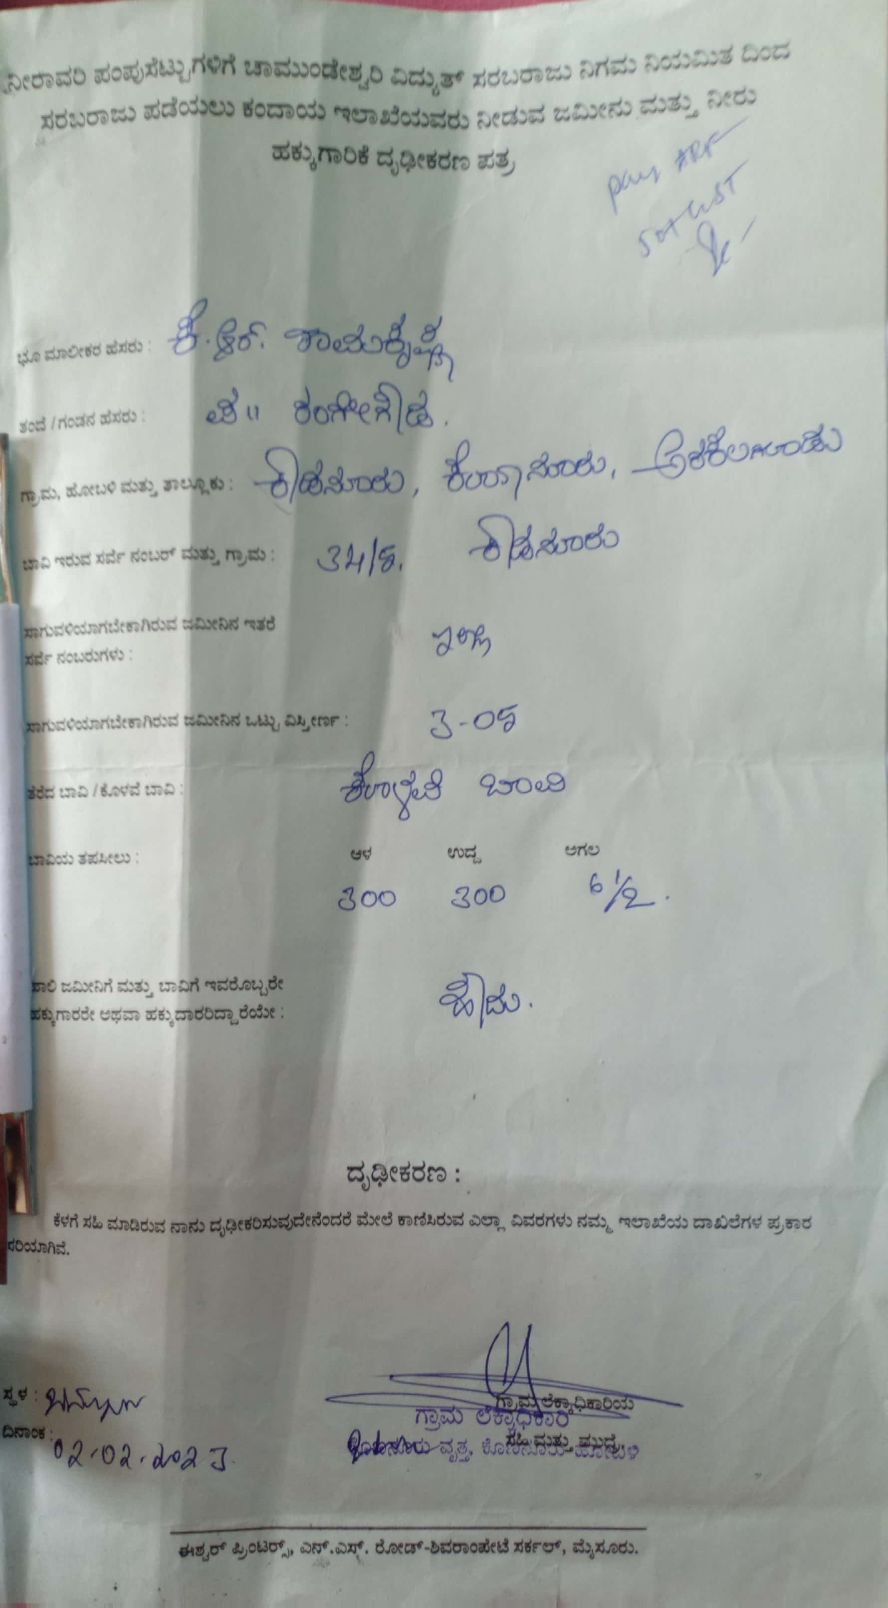 ನೀರಾವರಿ ಪಂಪುಸೆಟ್ಟುಗಳಿಗೆ ಚಾಮುಂಡೇಶ್ವರಿ ವಿದ್ಯುತ್ ಸರಬರಾಜು ನಿಗಮ ನಿಯಮಿತ ದಿಂದ
ಸರಬರಾಜು ಪಡೆಯಲು ಕಂದಾಯ ಇಲಾಖೆಯವರು ನೀಡುವ ಜಮೀನು ಮತ್ತು ನೀರು
ಹಕ್ಕುಗಾರಿಕೆ ದೃಢೀಕರಣ ಪತ್ರ
ಭೂ ಮಾಲೀಕರ ಹೆಸರು : ಕೆ.ಆರ್. ರಾಮಕೃಷ್ಣ
ತಂದೆ / ಗಂಡನ ಹೆಸರು : ರಂಗೇಗೌಡ.
ಗ್ರಾಮ, ಹೋಬಳಿ ಮತ್ತು ತಾಲ್ಲೂಕು : ಕಾಡನೂರು, ಕೊಣನೂರು, ಅರಕಲಗೂಡು
ಬಾವಿ ಇರುವ ಸರ್ವೆ ನಂಬರ್ ಮತ್ತು ಗ್ರಾಮ : 34/5. ಕಾಡನೂರು
ಸಾಗುವಳಿಯಾಗಬೇಕಾಗಿರುವ ಜಮೀನಿನ ಇತರೆ
ಸರ್ವೆ ನಂಬರುಗಳು : ಇಲ್ಲ
ಸಾಗುವಳಿಯಾಗಬೇಕಾಗಿರುವ ಜಮೀನಿನ ಒಟ್ಟು ವಿಸ್ತೀರ್ಣ : 3-05
ತೆರೆದ ಬಾವಿ / ಕೊಳವೆ ಬಾವಿ : ಕೊಳವೆ ಬಾವಿ
ಬಾವಿಯ ತಪಸೀಲು : ಆಳ ಉದ್ದ ಅಗಲ
300 300 6 1/2.
ಸಾಲಿ ಜಮೀನಿಗೆ ಮತ್ತು ಬಾವಿಗೆ ಇವರೊಬ್ಬರೇ
ಹಕ್ಕುಗಾರರೇ ಅಥವಾ ಹಕ್ಕುದಾರರಿದ್ದಾರೆಯೇ : ಹೌದು.
ದೃಢೀಕರಣ :
ಕೆಳಗೆ ಸಹಿ ಮಾಡಿರುವ ನಾನು ದೃಢೀಕರಿಸುವುದೇನೆಂದರೆ ಮೇಲೆ ಕಾಣಿಸಿರುವ ಎಲ್ಲಾ ವಿವರಗಳು ನಮ್ಮ ಇಲಾಖೆಯ ದಾಖಲೆಗಳ ಪ್ರಕಾರ
ಸರಿಯಾಗಿವೆ.
ಸ್ಥಳ :
ಗ್ರಾಮ ಲೆಕ್ಕಾಧಿಕಾರಿಯ
ಗ್ರಾಮ ಲೆಕ್ಕಾಧಿಕಾರಿ
ದಿನಾಂಕ : 02.02.2023
ಸಹಿ ಮತ್ತು ಮುದ್ರೆ
ವೃತ್ತ, ಕೊಣನೂರು ಹೋಬಳಿ
ಈಶ್ವರ್ ಪ್ರಿಂಟರ್ಸ್, ಎನ್.ಎಸ್. ರೋಡ್-ಶಿವರಾಂಪೇಟೆ ಸರ್ಕಲ್, ಮೈಸೂರು.